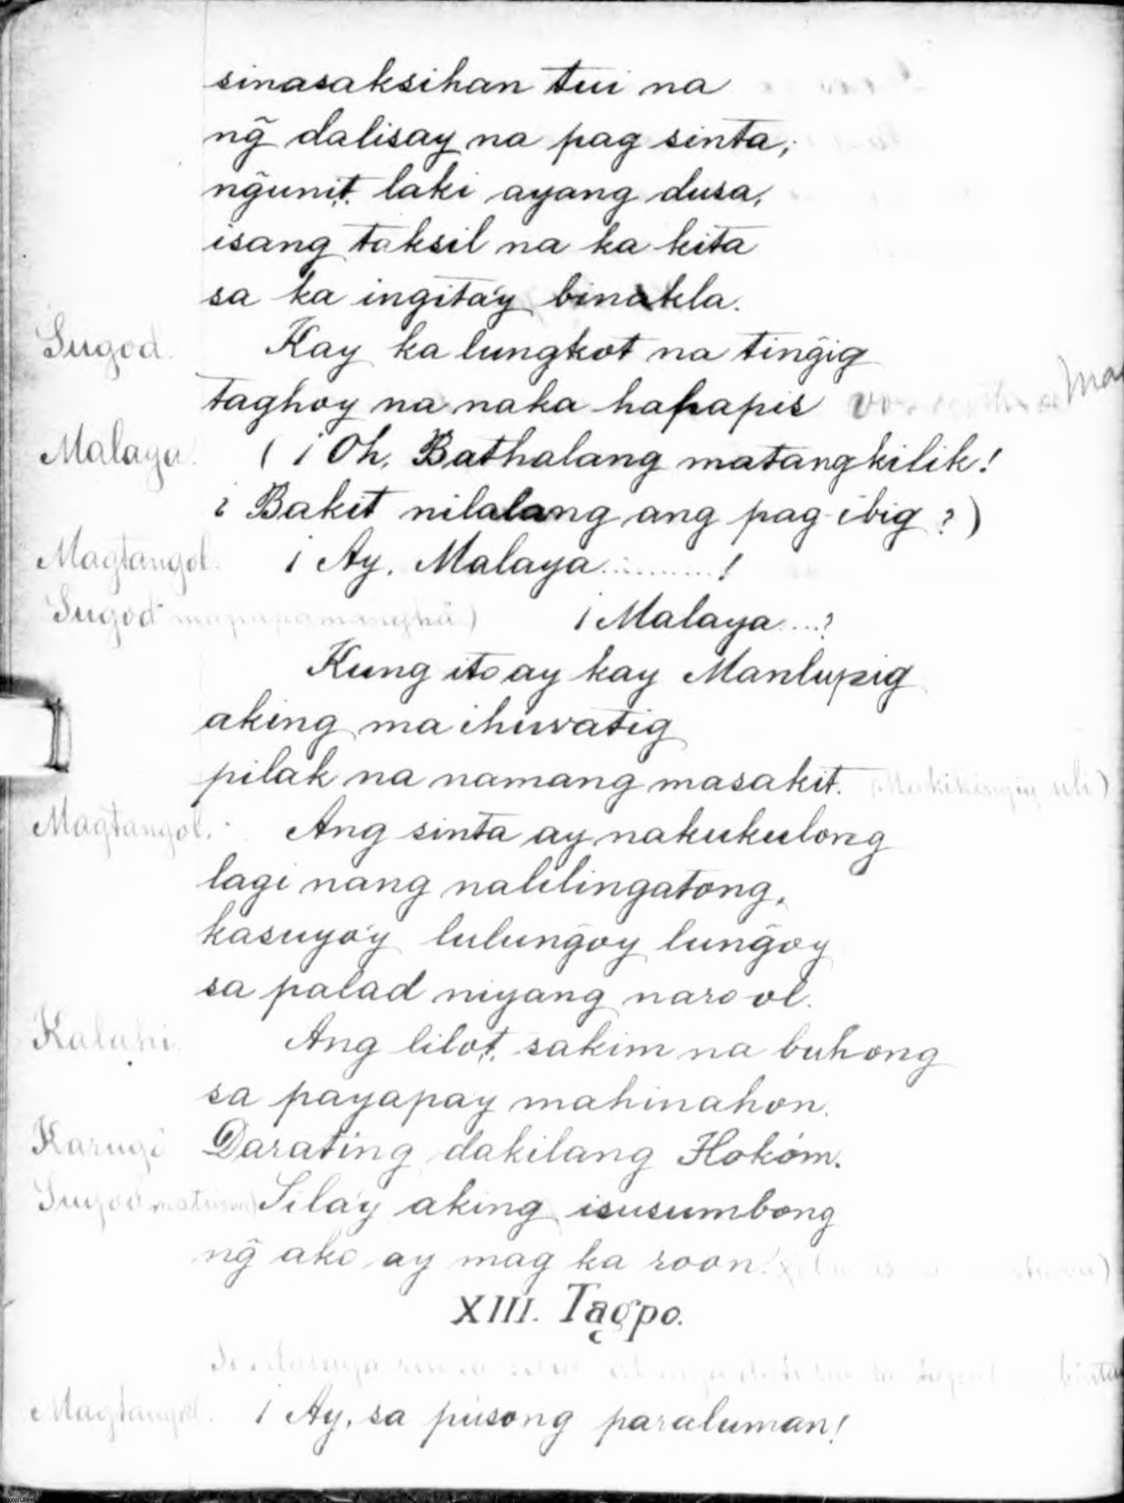 sinasaksihan tui na
ng̃ dalisay na pag sinta;
ng̃unit, laki ayang dusa,
isang taksil na ka kita
sa ka ingita'y binakla.
Sugod. Kay ka lungkot na ting̃ig
taghoy na naka hahapis
Malaya. ( ¡ Oh, Bathalang matangkilik!
¿ Bakit nilalang ang pag-ibig ? )
Magtangol. ¡ Ay, Malaya..........!
Sugod ¡ Malaya....?
Kung ito ay kay Manlupig
aking ma ihiwatig
pilak na namang masakit. (Makikinyig uli)
Magtangol. Ang sinta ay nakukulong
lagi nang nalilingatong,
kasuyo'y lulung̃oy lung̃oy
sa palad niyang naro ol.
Kalahi. Ang lilot, sakim na buhong
sa payapay mahinahon.
Karugi Darating dakilang Hokóm.
Sugod Sila'y aking isusumbong
ng̃ ako ay mag ka roon.
XIII. Tagpo.
Magtangol. ¡ Ay, sa púsong paraluman!